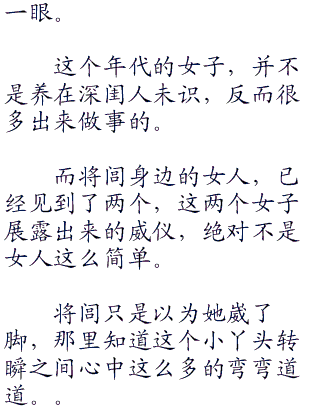 一眼。
这个年代的女子，并不
是养在深闺人未识，反而很
多出来做事的。
而将闾身边的女人，已
经见到了两个，这两个女子
展露出来的威仪，绝对不是
女人这么简单。
将闾只是以为她崴了
脚，那里知道这个小丫头转
瞬之间心中这么多的弯弯道
道。。